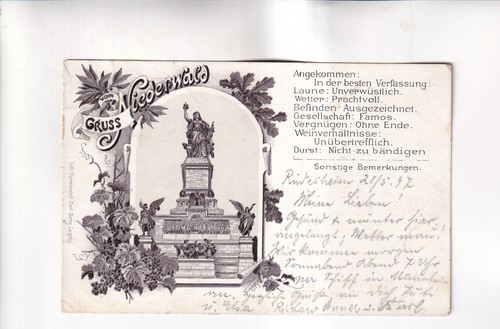 GRUSS vom Niederwald
Angekommen:
In der besten Verfassung:
Laune: Unverwüstlich.
Wetter: Prachtvoll.
Befinden: Ausgezeichnet.
Gesellschaft: Famos.
Vergnügen: Ohne Ende.
Weinverhältnisse:
Unübertrefflich.
Durst: Nicht zu bändigen
Sonstige Bemerkungen.
Rüdesheim 21/5. 97
Meine Lieben!
Gesund & munter hier
angelangt, Wetter
Wir kommen morgen
Sonnabend Abend 7 Uhr
per Schiff in Mannheim
an. Herzliche Grüsse an Dich
u.